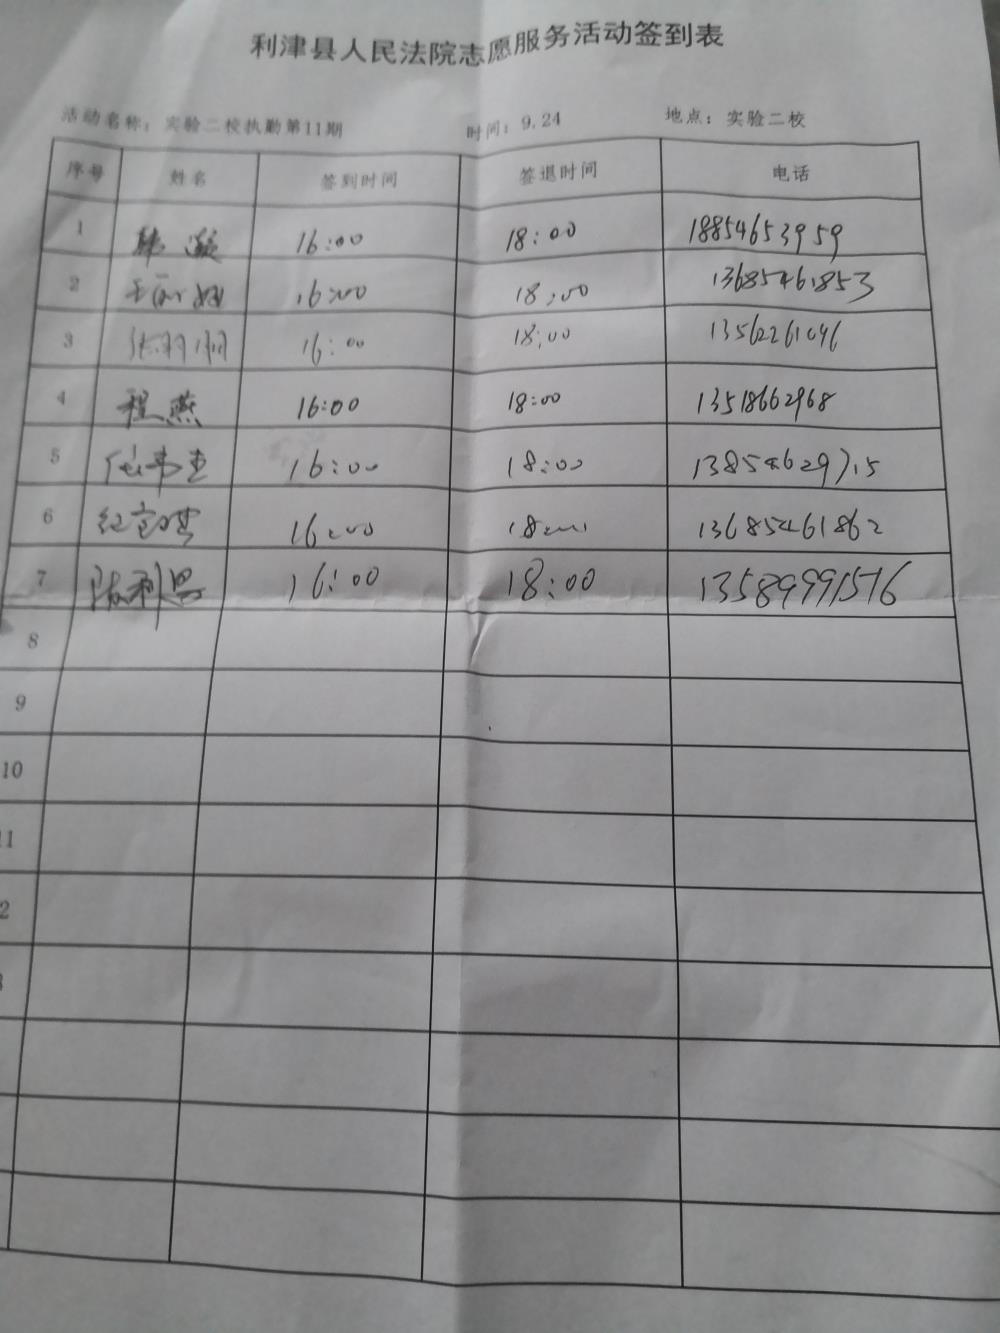 利津县人民法院志愿服务活动签到表
活动名称：实验二校执勤第11期 时间：9.24 地点：实验二校
序号 姓名 签到时间 签退时间 电话
1 16:00 18:00 18854653959
2 16:00 18:00 13685461853
3 16:00 18:00 13562261096
4 程燕 16:00 18:00 13518662968
5 16:00 18:00 13854629715
6 16:00 18:00 13685461862
7 16:00 18:00 13589991516
8
9
10